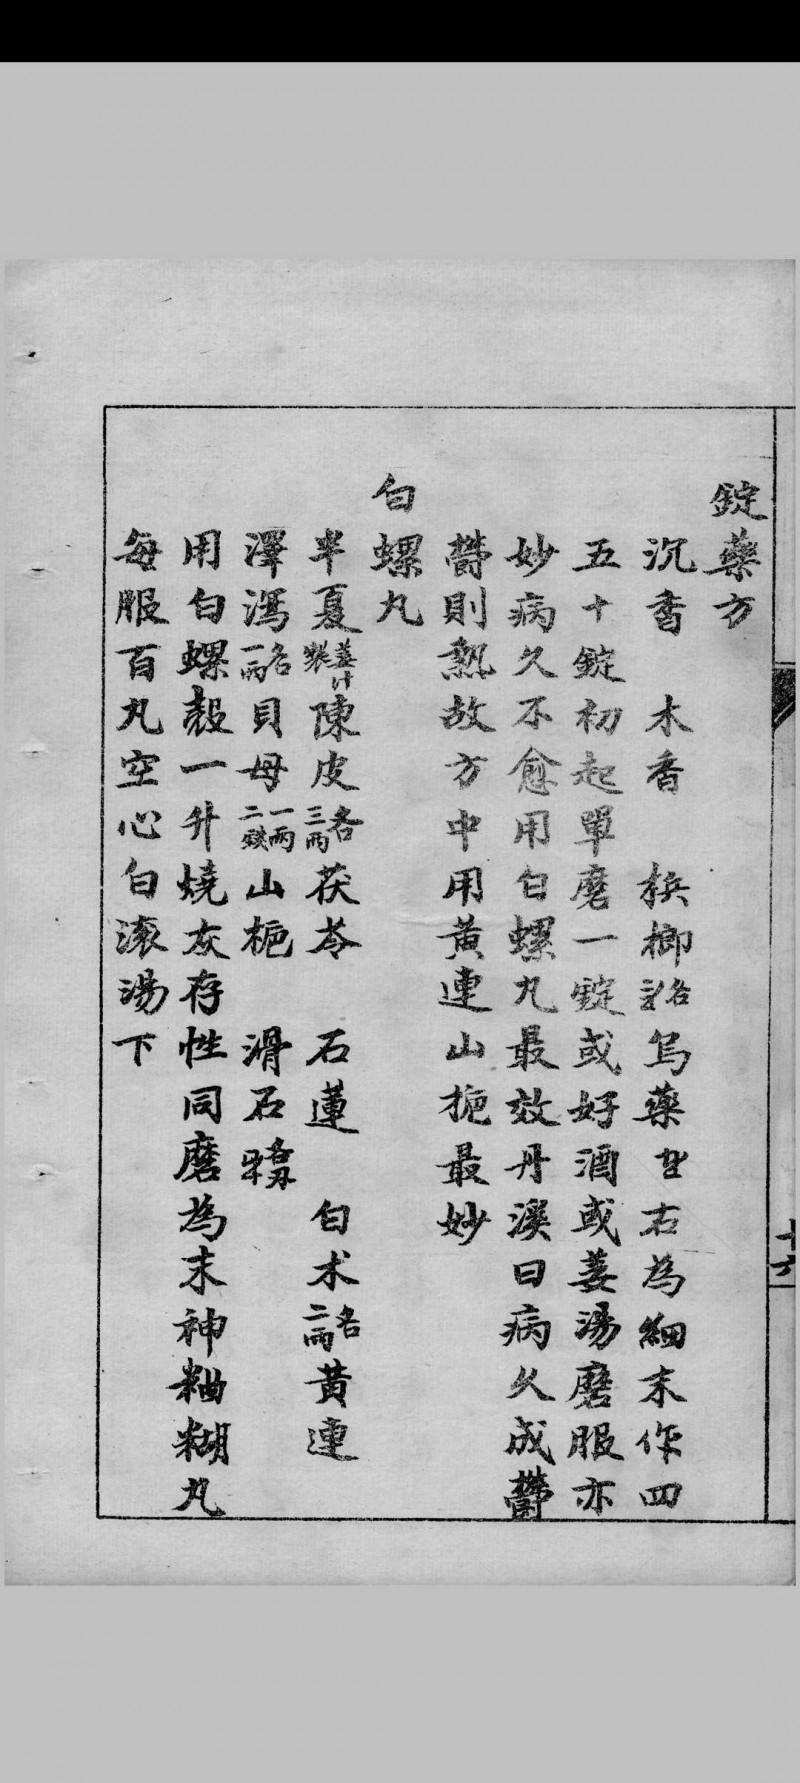 錠藥方
沉香　木香　梹榔各　烏藥　右為細末作四
五十錠初起單磨一錠或好酒或姜湯磨服亦
妙病久不愈用白螺丸最效丹溪曰病久成鬱
鬱則熱故方中用黃連山梔最妙
白螺丸
半夏姜汁製陳皮各三兩茯苓　石蓮　白术各二兩黃連
澤瀉各一兩貝母一兩二錢山梔　滑石各
用白螺殼一升燒灰存性同磨為末神粬糊丸
每服百丸空心白滚湯下
十六